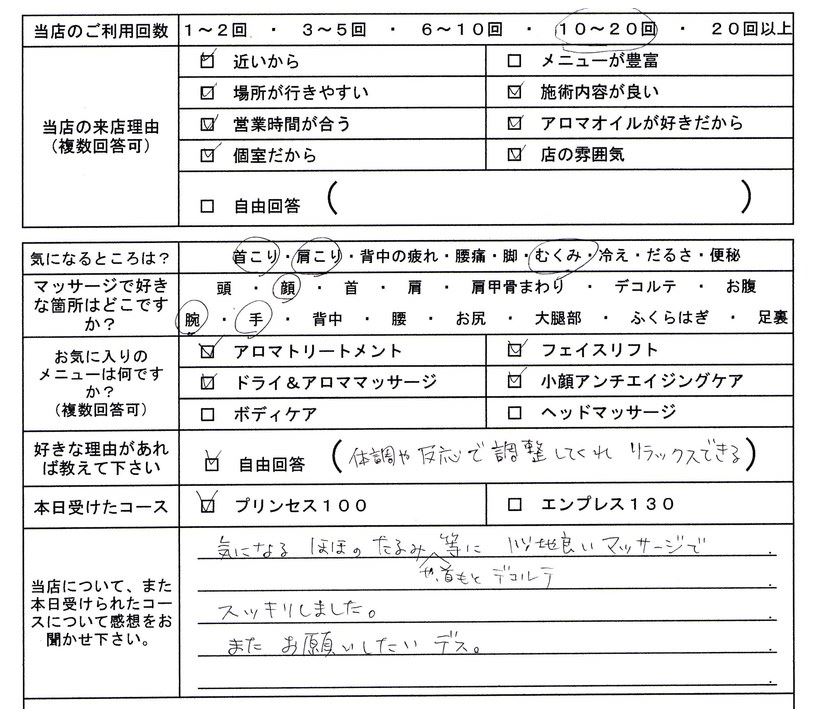 当店のご利用回数 1～2回 ・ 3～5回 ・ 6～10回 ・ 10～20回 ・ 20回以上
当店の来店理由
（複数回答可）
☑ 近いから □ メニューが豊富
☑ 場所が行きやすい ☑ 施術内容が良い
☑ 営業時間が合う ☑ アロマオイルが好きだから
☑ 個室だから ☑ 店の雰囲気
□ 自由回答 （ ）
気になるところは？ 首こり・肩こり・背中の疲れ・腰痛・脚・むくみ・冷え・だるさ・便秘
マッサージで好き
な箇所はどこです
か？
頭 ・ 顔 ・ 首 ・ 肩 ・ 肩甲骨まわり ・ デコルテ ・ お腹
腕 ・ 手 ・ 背中 ・ 腰 ・ お尻 ・ 大腿部 ・ ふくらはぎ ・ 足裏
お気に入りの
メニューは何です
か？
（複数回答可）
☑ アロマトリートメント ☑ フェイスリフト
☑ ドライ＆アロママッサージ ☑ 小顔アンチエイジングケア
□ ボディケア □ ヘッドマッサージ
好きな理由があれ
ば教えて下さい
☑ 自由回答 （体調や反応で調整してくれ リラックスできる）
本日受けたコース ☑ プリンセス100 □ エンプレス130
当店について、また
本日受けられたコー
スについて感想をお
聞かせ下さい。
気になる ほほのたるみ 等に 心地良いマッサージで
や、首もと デコルテ
スッキリしました。
また お願いしたい デス。